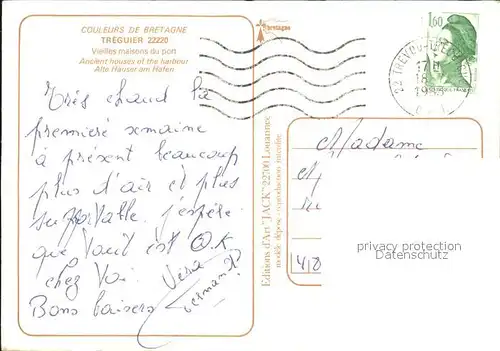 COULEURS DE BRETAGNE
TRÉGUIER 22220
Vieilles maisons du port
Ancient houses of the harbour
Alte Häuser am Hafen
bretagne
1,60
Très chaud la
première semaine
à présent beaucoup
plus d'air et plus
supportable. j'espère
que tout est O.K.
chez toi.
Bons baisers
Editions d'Art "JACK" 22700 Louannec
modèle déposé - reproduction interdite
Madame
privacy protection
Datenschutz